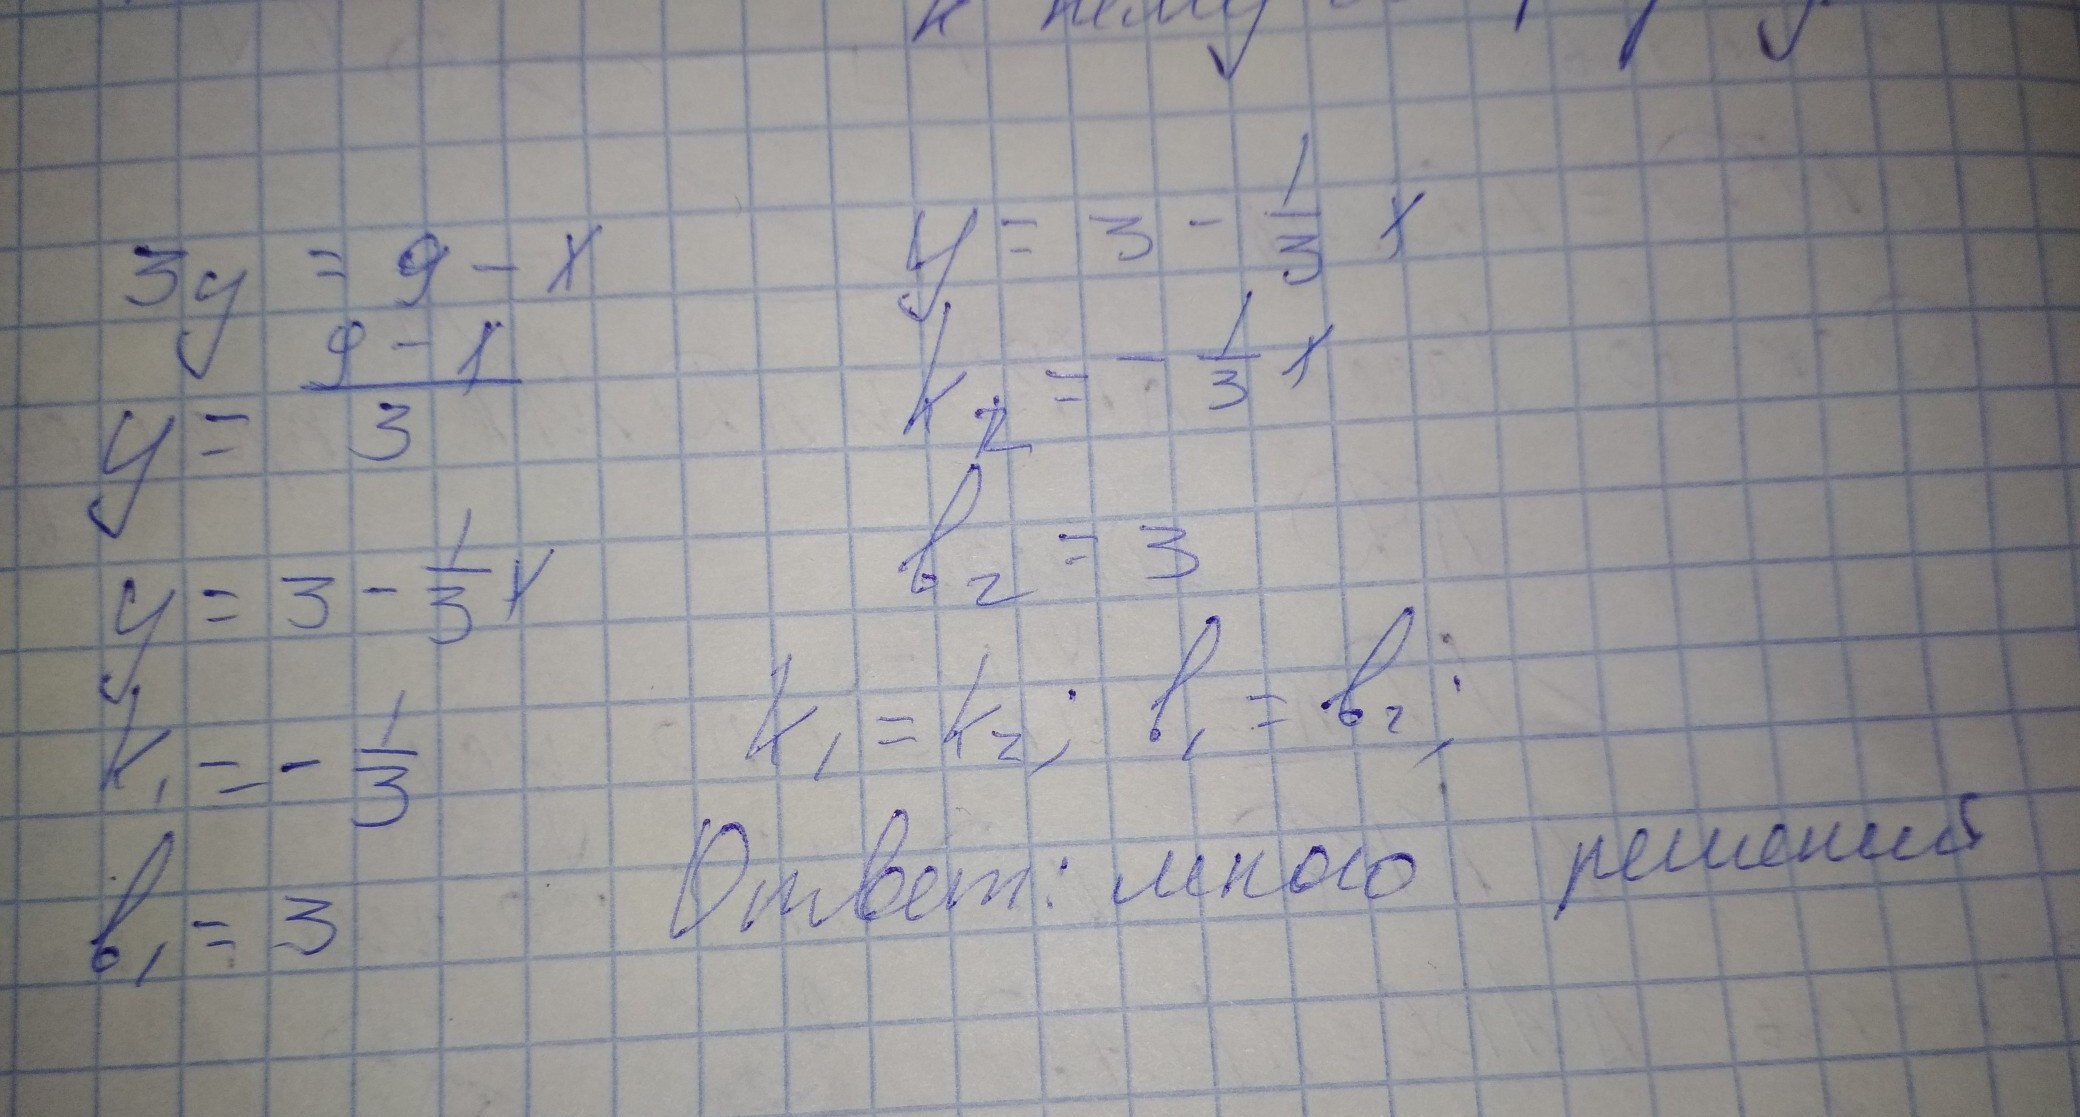 к нему
3y = 9 - x
y = \frac{9 - x}{3}
y = 3 - \frac{1}{3} x
k₁ = - \frac{1}{3}
b₁ = 3
y = 3 - \frac{1}{3} x
k₂ = - \frac{1}{3} x
b₂ = 3
k₁ = k₂; b₁ = b₂;
Ответ: много решений